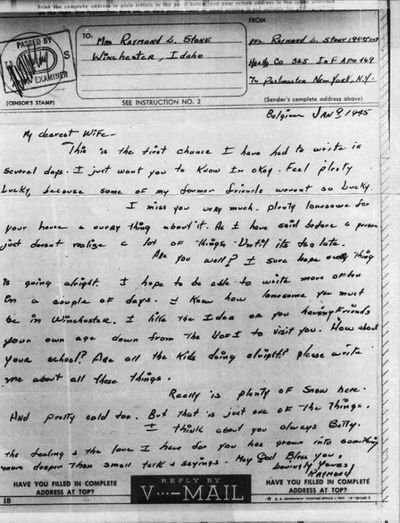 Print the complete address in plain letters in the panel below, and your return address in the space provided
PASSED BY
EXAMINER
(CENSOR'S STAMP)
TO:
Mrs Raymond L. Stone
Winchester, Idaho
SEE INSTRUCTION NO. 2
FROM
Pfc. Raymond L. Stone
Hdq Co 365 Inf APO
To Postmaster New York, N.Y.
(Sender's complete address above)
Belgium Jan 9 1945
My dearest Wife—
This is the first chance I have had to write in
several days. I just want you to know Im okay. Feel plenty
lucky, because some of my former friends werent so lucky.
I miss you very much. plenty lonesome for
your home & every thing about it. As I have said before a person
just doesnt realize a lot of things until its too late.
Are you well? I sure hope every thing
is going alright. I hope to be able to write more often
in a couple of days. I know how lonesome you must
be in Winchester. I like the Idea of you having friends
your own age down from the U of I to visit you. How about
your school? Are all the kids doing alright? please write
me about all these things.
Really is plenty of snow here.
And pretty cold too. But that is just one of the things.
I think about you always Betty.
the feeling & the love I have for you has grown into something
more deeper than small talk & sayings. May God Bless you.
Lovingly Yours
Raymond
HAVE YOU FILLED IN COMPLETE
ADDRESS AT TOP?
REPLY BY
V···–MAIL
HAVE YOU FILLED IN COMPLETE
ADDRESS AT TOP?
18